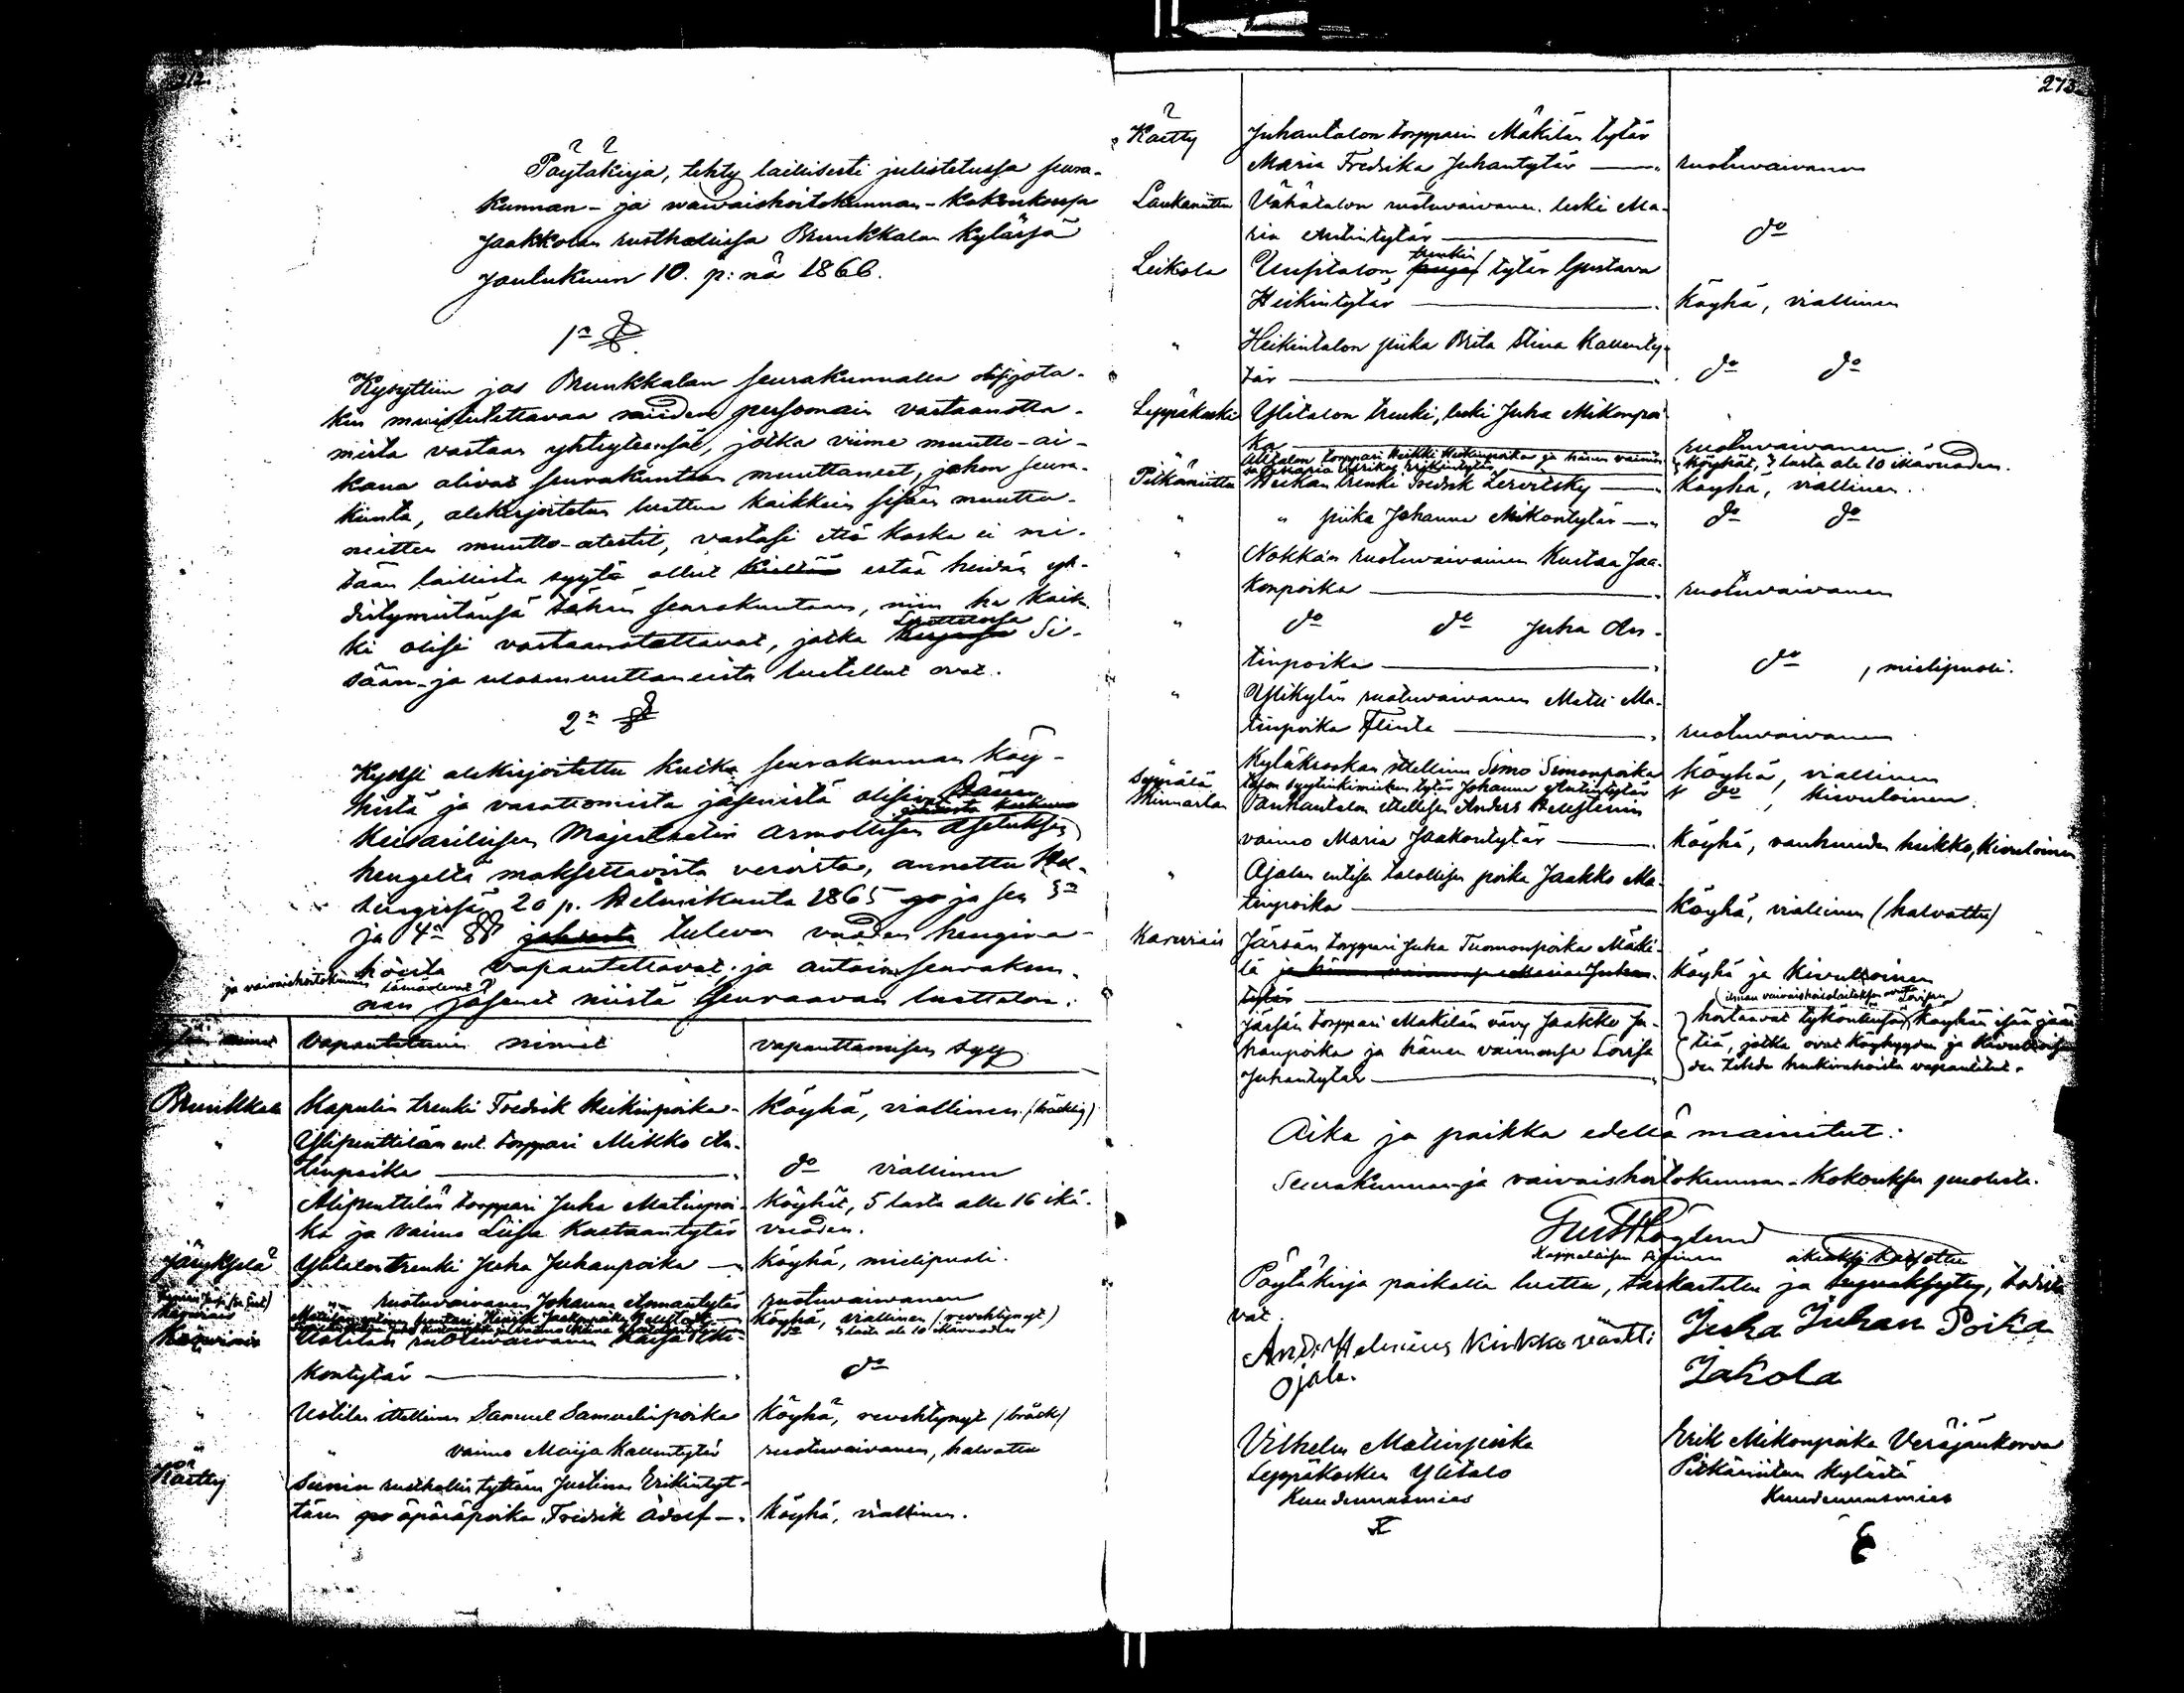 212.
Pöytäkirja, tehty laillisesti julistetussa seura-
kunnan- ja waiwaishoitokunnan-kokouksessa
Jaakkolan rusthollissa Prunkkalan kylässä
Joulukuun 10. p:nä 1866.
1n §.
Kysyttiin jos Prunkkalan seurakunnalla olisi jota-
kin muistutettavaa niiden persoonain vastaanotta-
mista vastaan yhteyteensä, jotka viime muutto-ai-
kana olivat seurakuntaan muuttaneet, johon seura-
kunta, allekirjoitetun luettua kaikkein sisään muutta-
neitten muutto-atestit, vastasi että koska ei mi-
tään laillista syytä ollut estää heidän yh-
distymistänsä tähän seurakuntaan, niin he kaik-
ki olisi vastaanotettavat, jotka Luettelossa Si-
sään- ja ulosmuuttaneista luetellut ovat.
2n §
Kysyi allekirjoitettu kutka seurakunnan köy-
histä ja varattomista jäsenistä olisivat Hänen
Keisarillisen Majesteetin Armollisen Asetuksen
hengeltä maksettavista veroista, annettu Hel-
singissä 20 p. Helmikuuta 1865 ja sen 3n
ja 4n §§ tulevan vuoden hengira-
hoista vapautettavat, ja antoi seurakun-
ja vaivaishoitokunnan
nan jäsenet niistä seuraavan luettelon:
nimet
Vapautettuin nimet
Vapauttamisen syy
Prunkkala
Kapulin trenki Fredrik Heikinpoika
Köyhä, viallinen (bräcklig)
"
Ylipenttilän ent. torppari Mikko An-
tinpoika
do viallinen
"
Alipenttilän torppari Juha Matinpoi-
ka ja vaimo Liisa Kustaantytär
Köyhät, 5 lasta alle 16 ikä-
vuoden.
Järykselä
Ylitalon trenki Juha Juhanpoika
Köyhä, mielipuoli.
ruotuvaivanen Johanna Annantytär
ruotuvaivanen
Köyhä, viallinen (revehtynyt)
do
kontytär
do
"
Uotilan itellinen Samuel Samuelinpoika
Köyhä, revehtynyt (bråck)
"
" vaimo Maija Kallentytär
ruotuvaivanen, halvattu
Kärtty
Seunin rusthollin tyttären Justina Erikintyt-
tären äpäräpoika Fredrik Adolf
Köyhä, viallinen.
273.
Kärtty
Juhantalon torpparin Mäkilän tytär
Maria Fredrika Juhantytär
ruotuvaivanen
Laukaniittu
Vähätalon ruotuvaivanen leski Ma-
ria Antintytär
do
Leikola
Uusitalon trenkin tytär Gustava
Heikintytär
Köyhä, viallinen
"
Heikintalon piika Brita Stina Kallenty-
tär
do do
Leppäkoski
Ylitalon trenki, leski Juha Mikonpoi-
ka
ruotuvaivanen
"
Alitalon torppari Heikki Heikinpoika ja hänen vaimon-
sa Maria Ulrika Erikintytär
Köyhät, 3 lasta alle 10 ikävuoden.
Pitkäniittu
Heikan trenki Fredrik Zervitsky
Köyhä, viallinen.
"
" piika Johanna Mikontytär
do do
"
Nokkan ruotuvaivainen Kustaa Jaa-
konpoika
ruotuvaivanen
"
do do Juha An-
tinpoika
do, mielipuoli.
"
Ylikylän ruotuvaivanen Matti Ma-
tinpoika Flinta
ruotuvaivanen
Kyläkraatan itellinen Simo Simonpoika
Köyhä, viallinen
Seppälä
tytär Johanna Antintytär
do, kivuloinen.
Minnarla
Vanhantalon itellisen Anders Hellsténin
vaimo Maria Jaakontytär
Köyhä, vanhuuden heikko, kivuloinen
"
Ojalan entisen talollisen poika Jaakko Ma-
tinpoika
Köyhä, viallinen (halvattu)
Karviais
Järvän torppari Juha Tuomonpoika Mäki-
lä
Köyhä ja kivuloinen
"
Järvän torppari Mäkilän vävy Jaakko Ju-
hanpoika ja hänen vaimonsa Lovisa
Juhantytär
(ilman vaivaishoidolaitoksen apua Lovisan)
hoitaavat tykönänsä köyhän isän jään-
tiä, jotka ovat köyhyyden ja kivuloisuu-
den tähden henkirahoista vapautetut.
Aika ja paikka edellä mainitut.
Seurakunnan- ja vaivaishoitokunnan-kokouksen puolesta.
Gust. Höglund
Kappalaisen Apulainen
Pöytäkirja paikalla luettu, tarkastettu ja hyväksytty, todista-
vat
And. Helenius Kirkkoväärti
Ojala.
Juha Juhan Poika
Jakola
Vilhelm Matinpoika
Leppäkosken Ylitalo
Kuudennusmies
Erik Mikonpoika Veräjänkorva
Pitkäniitun kylästä
Kuudennusmies